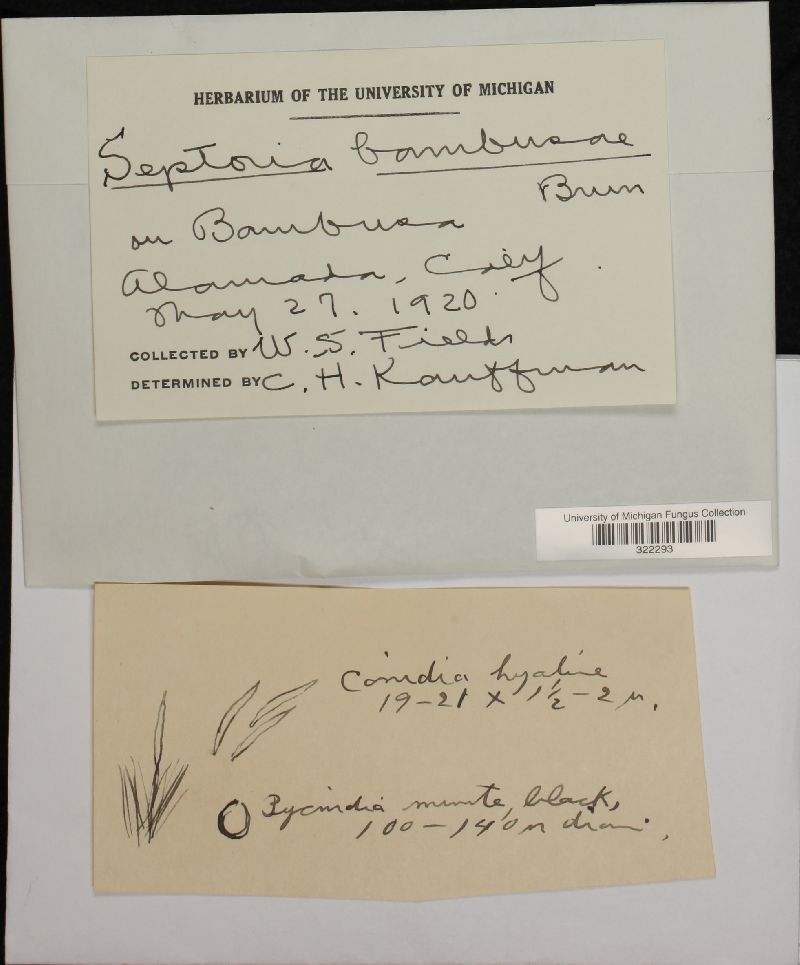 HERBARIUM OF THE UNIVERSITY OF MICHIGAN
Septoria bambusae
Brun
on Bambusa
Alamada, Calif.
May 27. 1920.
COLLECTED BY W. S. Fields
DETERMINED BY C. H. Kauffman
University of Michigan Fungus Collection
322293
Conidia hyaline
19-21 x 1½-2 µ.
Pycnidia minute, black,
100-140 µ diam.